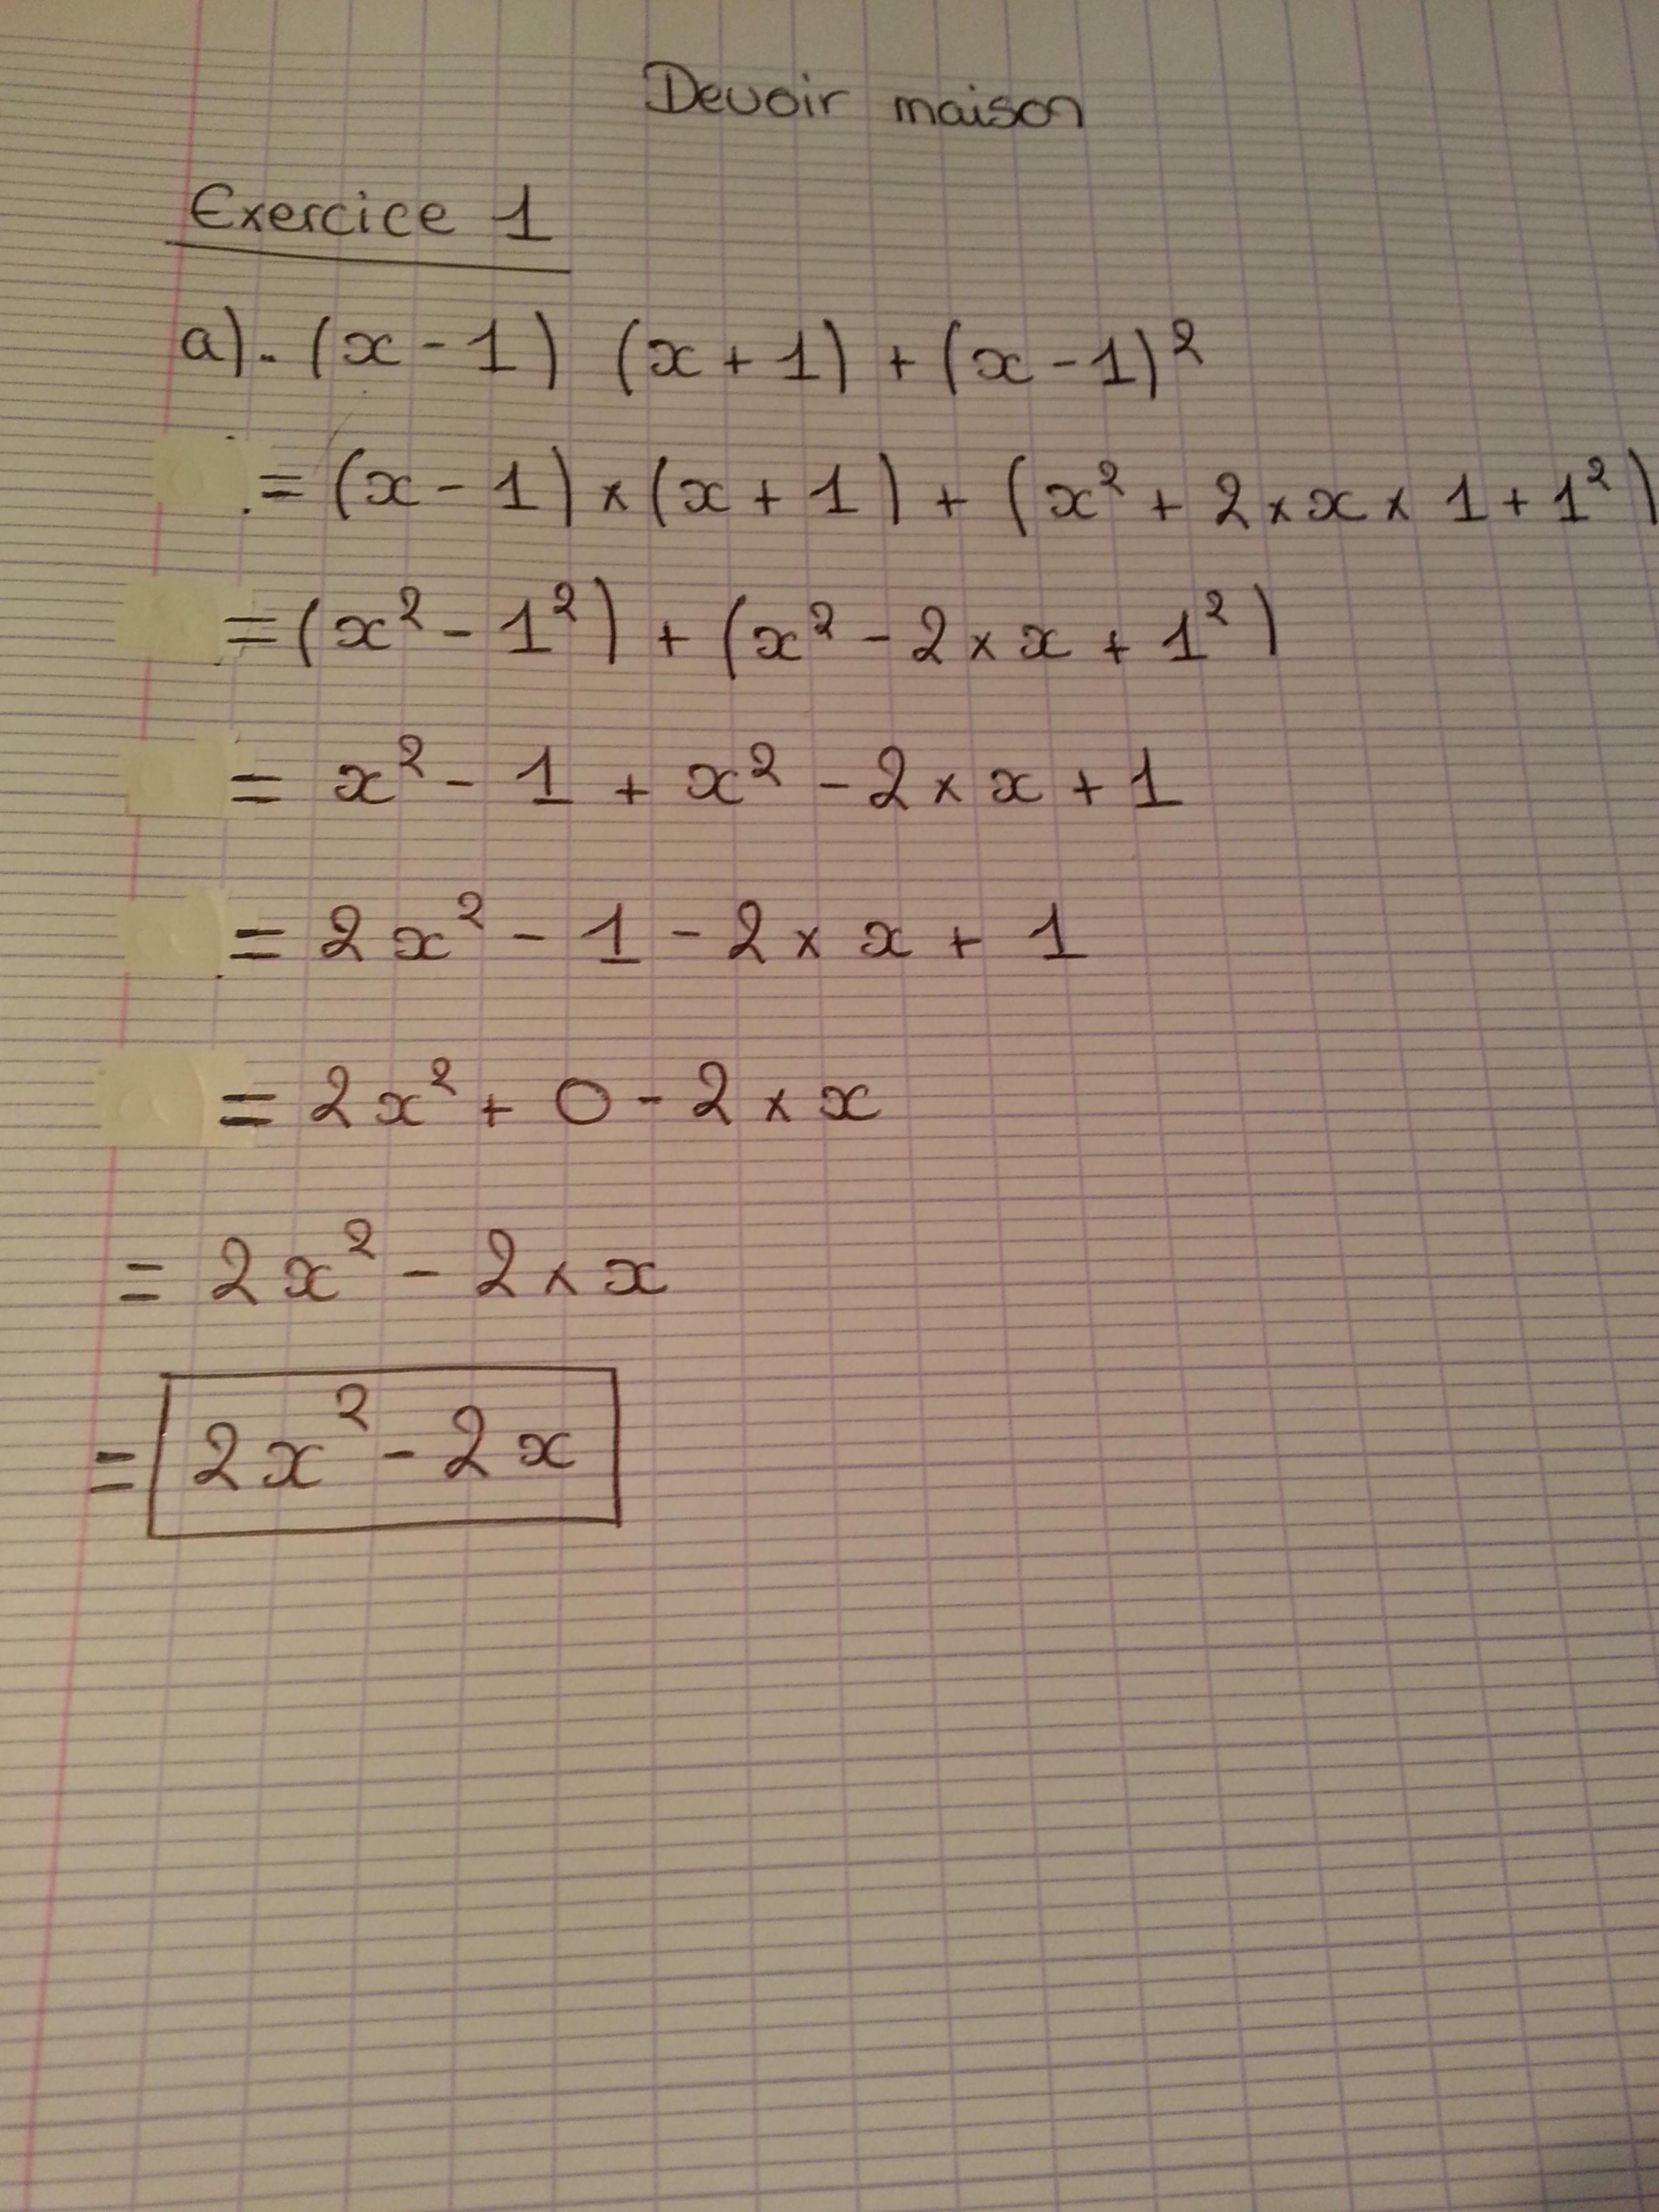 Devoir maison
Exercice 1
a)- (x - 1) (x + 1) + (x - 1)²
= (x - 1) × (x + 1) + (x² + 2 × x × 1 + 1²)
= (x² - 1²) + (x² - 2 × x + 1²)
= x² - 1 + x² - 2 × x + 1
= 2x² - 1 - 2 × x + 1
= 2x² + 0 - 2 × x
= 2x² - 2 × x
= 2x² - 2x